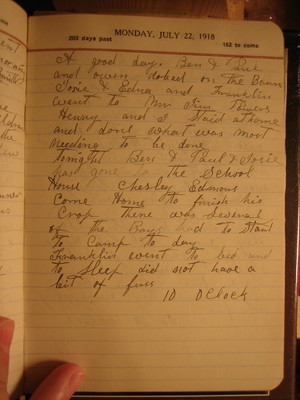 203 days past
MONDAY, JULY 22, 1918
162 to come
A good day. Ben & Paul
and owen worked on the Barn
Josie & Edna and Franklin
went to Mrs
Henry and I staid at home
and done what was most
needing to be done
tonight Ben & Paul & Josie
has gone to the School
House Chesley Edmons
Come Home to finish his
Crop there was several
of the Boys had to Start
to Camp to day
Franklin went to bed and
to sleep did not have a
bit of fuss
10 OClock